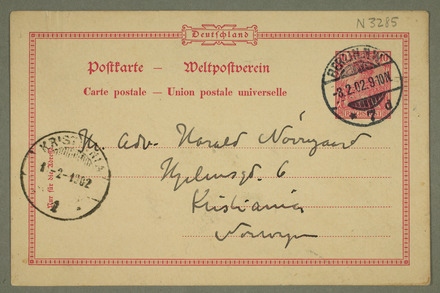 N 3285
Deutschland
Postkarte — Weltpostverein
Carte postale — Union postale universelle
BERLIN N.W.
-3.2.02.9-10N.
* 7 d
KRISTIANIA
2-1902
Hr Adv. Harald Nörregaard
Hjelmsgd. 6
Kristiania
Norwegen